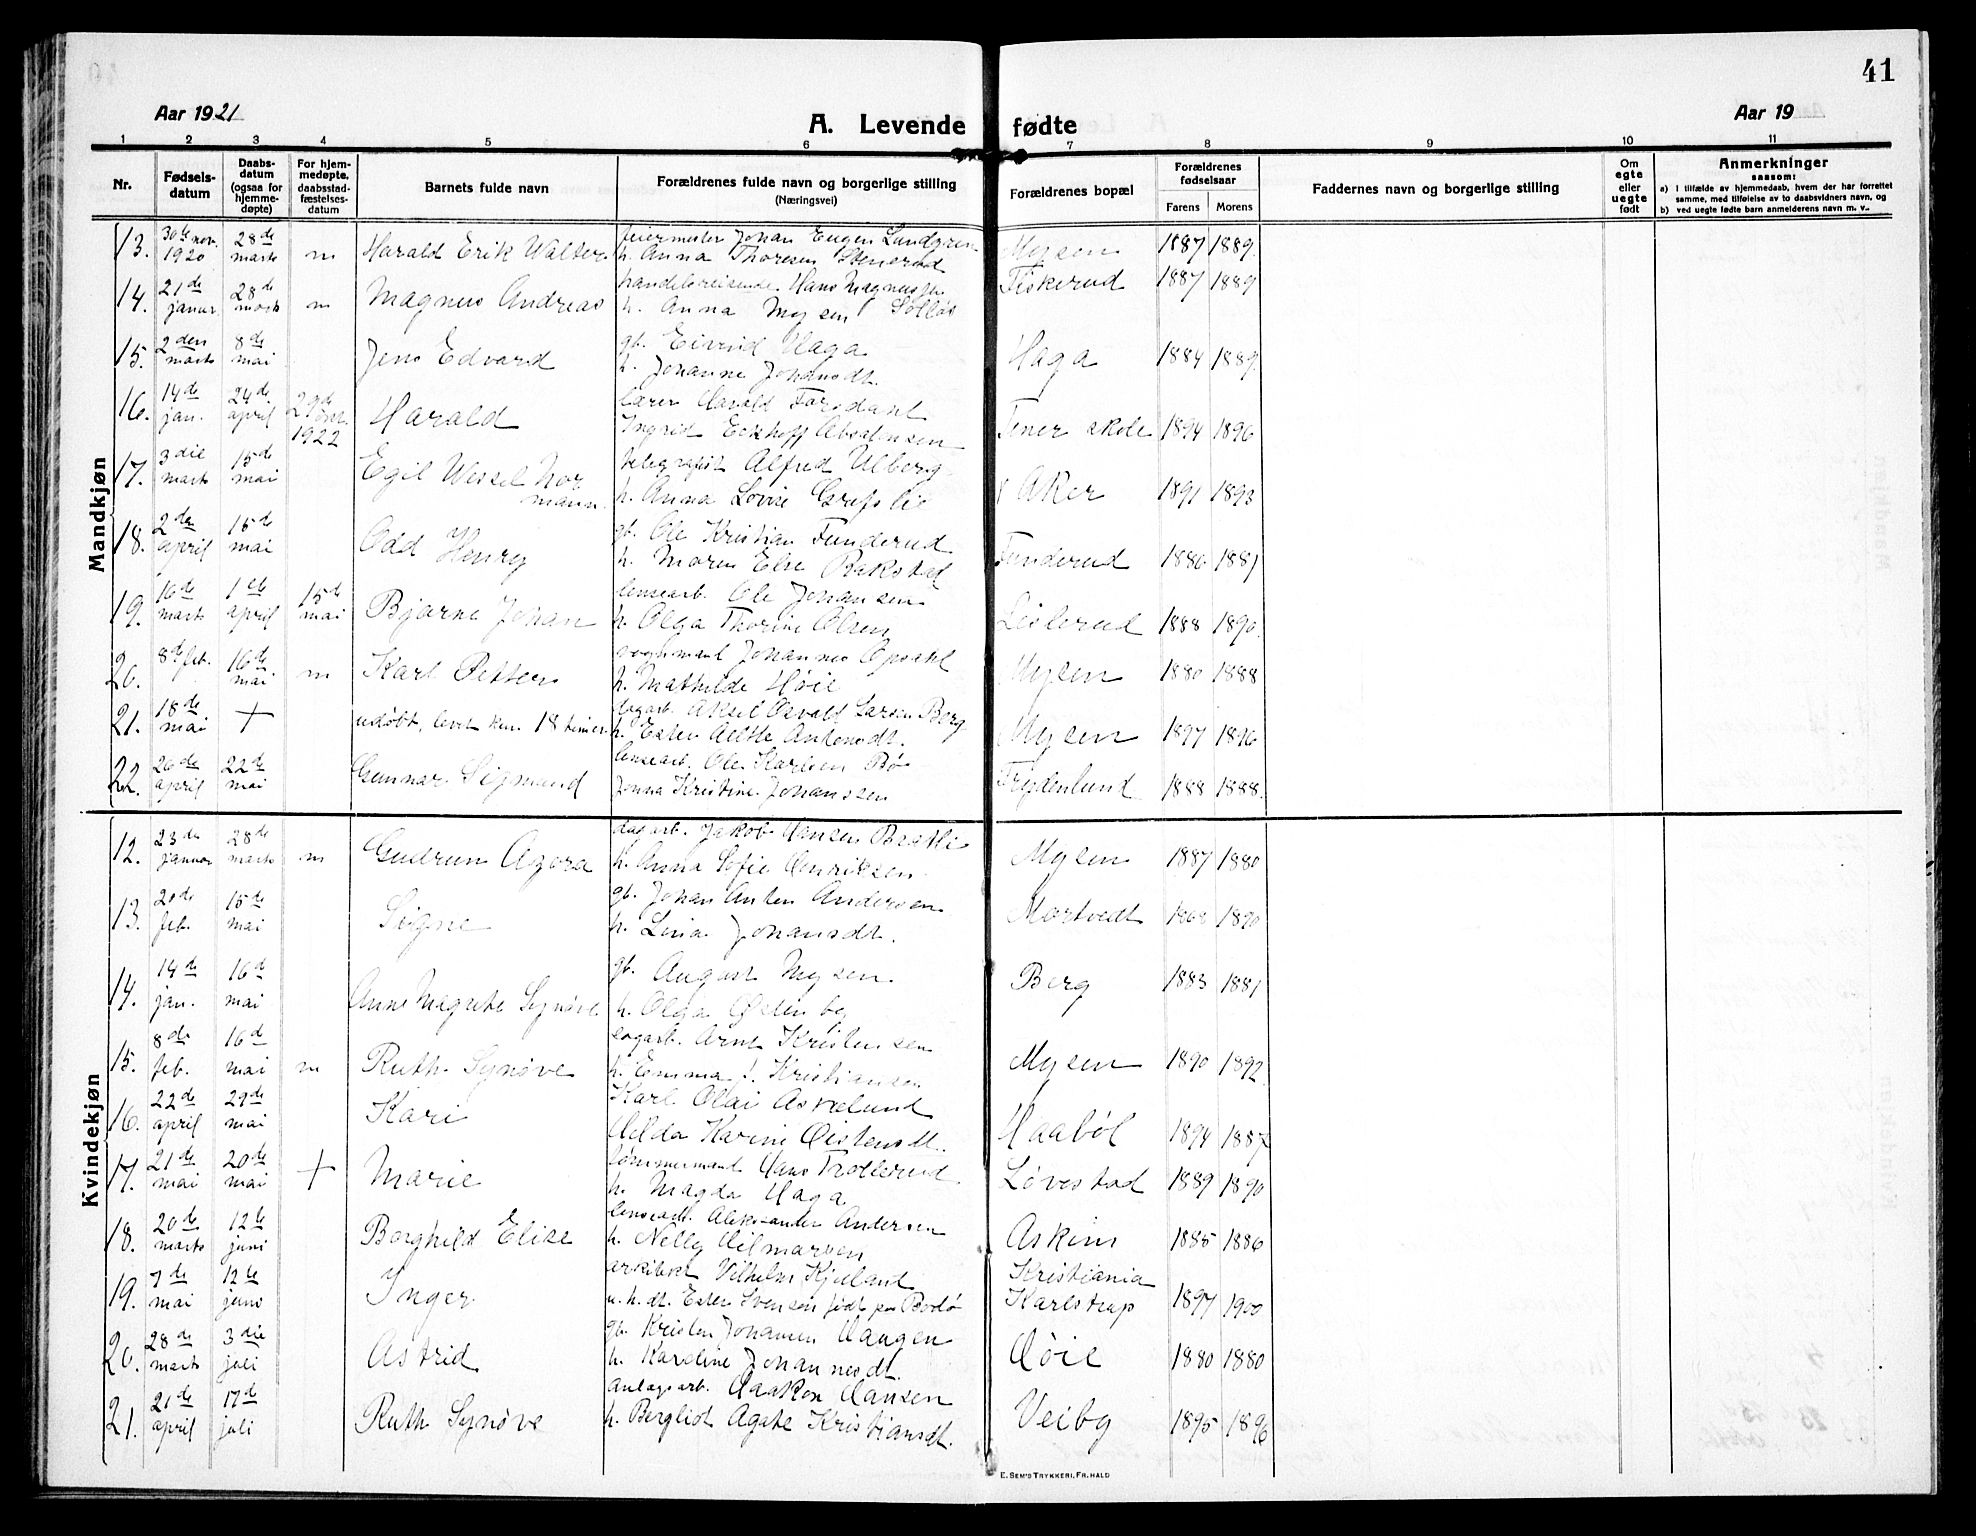 41
Aar 1921
A. Levende fødte
Aar 19
1 2 3 4 5 6 7 8 9 10 11
Nr.
Fødsels-
datum
Daabs-
datum
(ogsaa for
hjemme-
døpte)
For hjem-
medøpte.
daabsstad-
fæstelses-
datum
Barnets fulde navn
Forældrenes fulde navn og borgerlige stilling
(Næringsvei)
Forældrenes bopæl
Forældrenes
fødselsaar
Farens Morens
Faddernes navn og borgerlige stilling
Om
egte
eller
uegte
født
Anmerkninger
saasom:
a) I tilfælde av hjemmedaab, hvem der har forrettet
samme, med tilføielse av to daabsvidners navn, og
b) ved uegte fødte barn anmelderens navn m. v..
Mandkjøn
13. 30te nov. 1920 28de marts m Harald Erik Walter feiermester Johan Eugen Lundgren
h. Anna Thoresen Stenerud Mysen 1887 1889.
14. 21de januar 28de marts m Magnus Andreas handelsreisende Hans Magnus
h. Anna Mysen Solløs Fiskerud 1887 1889
15. 2den marts 8de mai Jens Edvard gb. Eivind Haga
h. Johanne Johansdt. Haga 1884 1889.
16. 14de jan. 24de april 29de 1922 Harald lærer Harald
Ingrid Eckhoff Absalonsen Tener skole 1894 1896
17. 3die marts 15de mai Egil Wessel Nor
mann. telegrafist Alfred Ulberg
h. Anna Lovise Grefslie Aker 1891 1893
18. 2den april 15de mai Odd Henry gb. Ole Kristian Funderud
h. Maren Else Rakstad Funderud 1886 1881
19. 16de marts 1ste april 15de mai Bjarne Johan lensearb. Ole Johansen
h. Olga Thorine Olsen Lislerud 1888 1890.
20. 8de feb. 16de mai m Karl Petter vognmand Johannes Opsahl
h. Mathilde Høie Mysen 1880 1888
21. 18de mai + udøbt, levet kun 18 timer dagarb. Aksel Osvald Larsen Berg
h. Ester Antonsdt. Mysen 1897 1896
22. 26de april 22de mai Gunnar Sigmund lensearb. Ole Karlsen Bø
Jonna Kristine Johanssen Frydenlund 1888 1888.
Kvindekjøn
12. 23de januar 28de marts m Gudrun Agora dagarb. Jakob Hansen Bratli
h. Anna Sofie Henriksen Mysen 1887 1880
13. 20de feb. 15de mai Signe gb. Johan Anton Andersen
h. Lina Johansdt. Mortvedt 1868 1890
14. 14de jan. 16de mai Anne Magrete Synøve gb. August Mysen
h. Olga Østenby Berg 1883 1881
15. 8de feb. 16de mai m Ruth Synøve sagarb. Arne Kristensen
h. Emma J. Kristiansen Mysen 1890 1892.
16. 22de april 29de mai Kari Karl Olai Askelund
Hilda Karine Øistensdt. Haabøl 1894 1887
17. 21de mai 20de mai + Marie tømmermand Hans Trollerud
h. Magda Haga Løvestad 1889 1890
18. 20de marts 12te juni Borghild Elise lensearb. Aleksander Andersen
h. Nelly Hilmarsen Askim 1885 1886
19. 7de mai 12te juni Inger arkitekt Vilhelm Kjelland
u. h. dt. Ester Svensen født på Bodø Kristiania
Karlstrup 1897 1900
20. 28de marts 3die juli Astrid gb. Kristen Johansen Haugen
h. Karoline Johannesdt. Høie 1880 1880
21. 21de april 17de juli Ruth Synøve anlægsarb. Haakon Hansen
h. Bergliot Agate Kristiansdt. Veiby 1895 1896
E. SEM'S TRYKKERI, FR.HALD